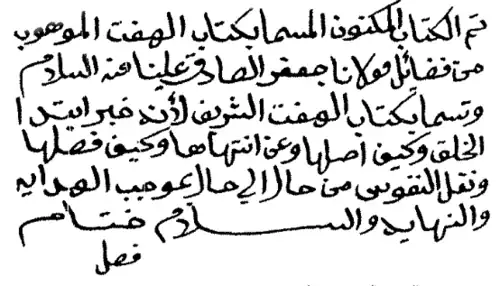 تم الكتاب المكنون المسما بكتاب الهفت الموهوب
من فضائل مولانا جعفر الصادق علينا منه السلام
وتسما بكتاب الهفت الشريف لأنه خبر ابتدا
الخلق وكيف اصلها وعن انتهاها وكيف فصلها
ونقل النفوس من حال الي حال بموجب الهدايه
والنهايه والســـــــلام ختام
فصل